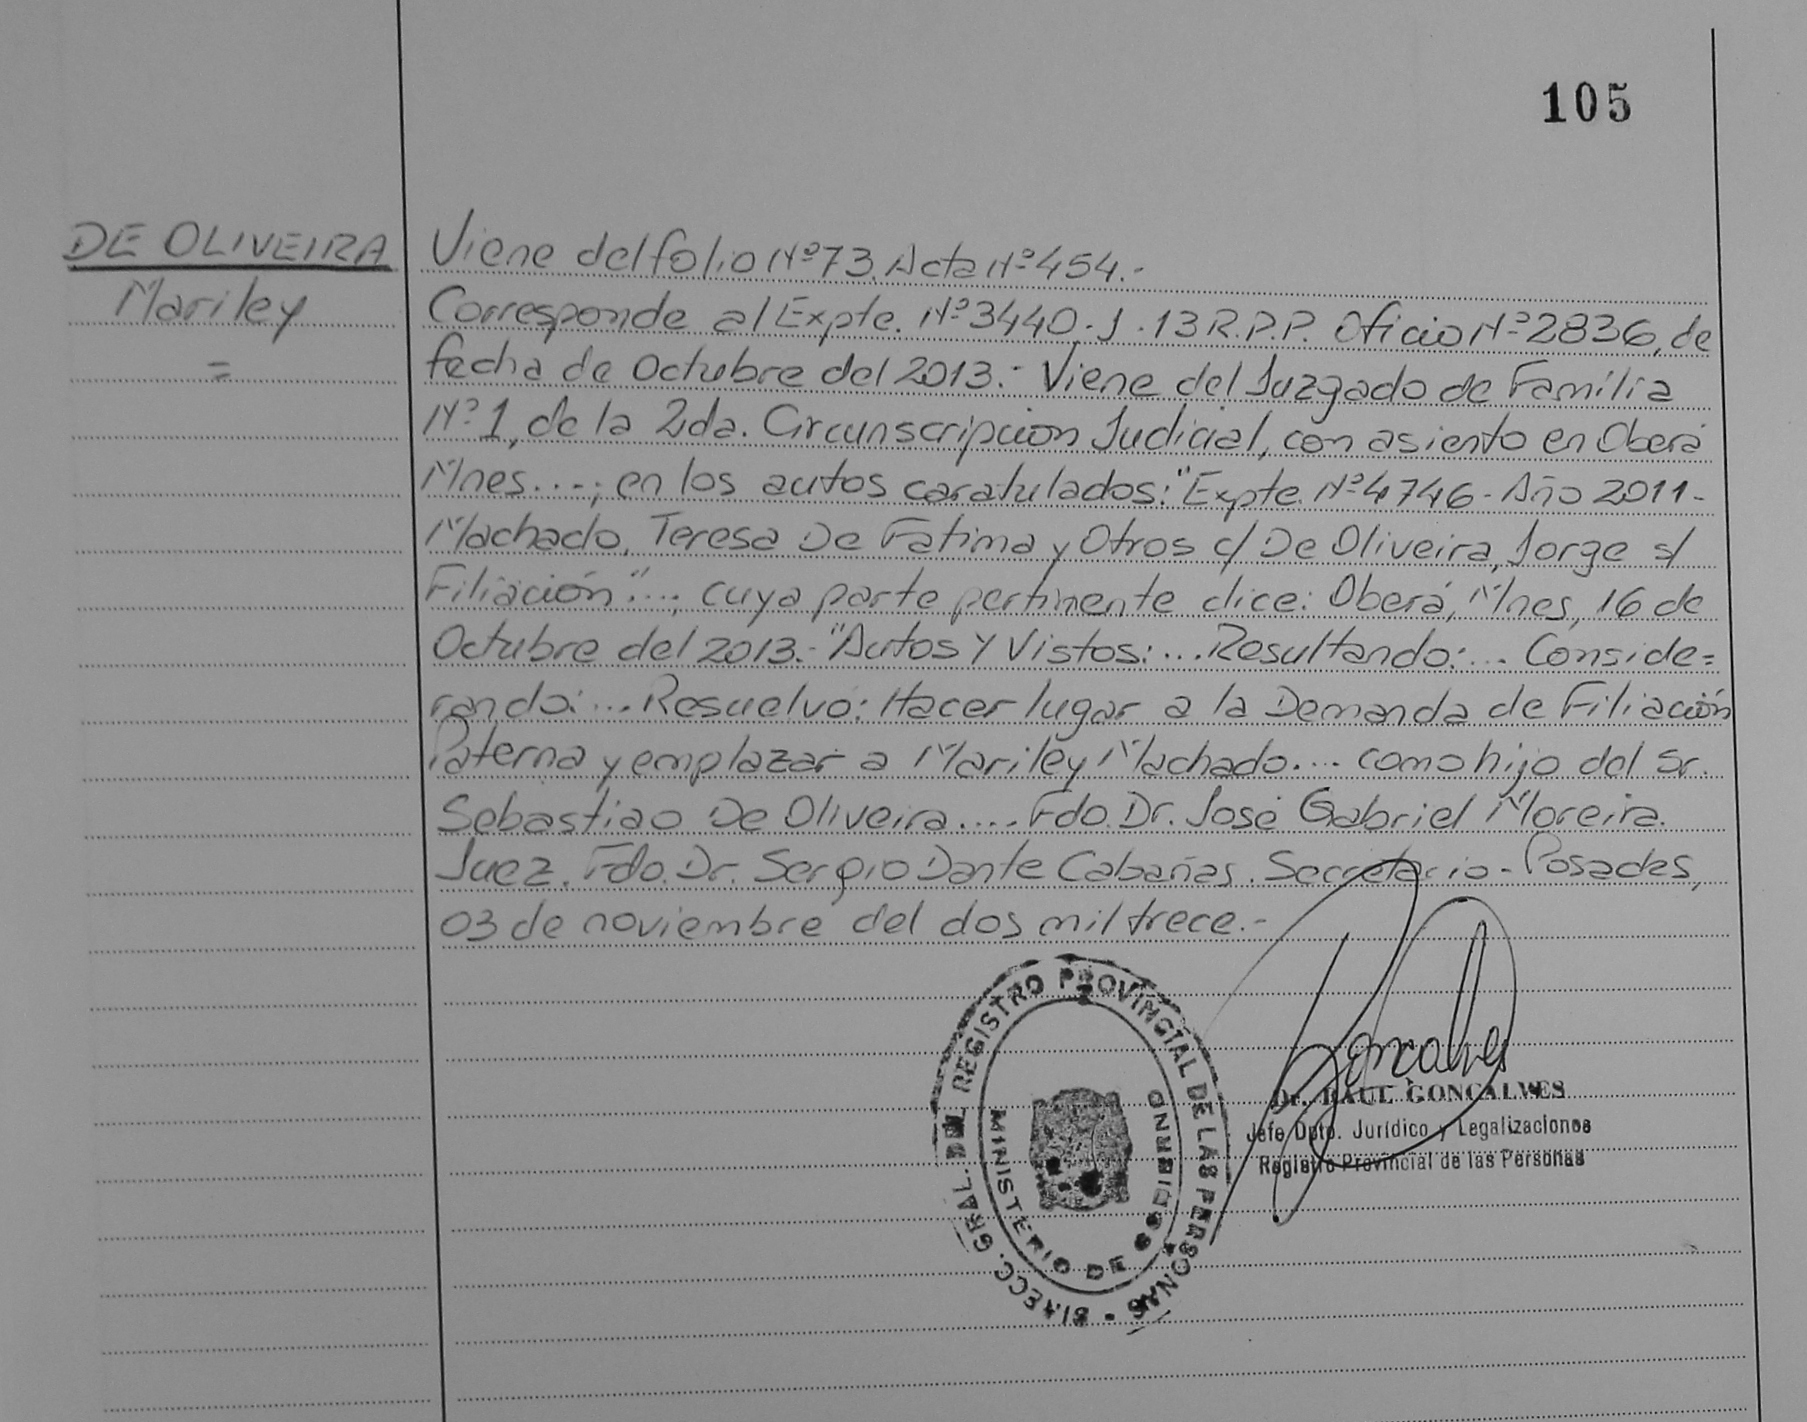 105
DE OLIVEIRA
Mariley
=
Viene del folio Nº73. Acta Nº454.-
Corresponde al Expte. Nº3440.J.13 R.P.P. Oficio Nº2836, de
fecha de Octubre del 2013.- Viene del Juzgado de Familia
Nº1, de la 2da. Circunscripción Judicial, con asiento en Oberá
Mnes....; en los autos caratulados: "Expte. Nº4746- Año 2011-
Machado, Teresa De Fatima y Otros c/ De Oliveira, Jorge s/
Filiación"...; cuya parte pertinente dice: Oberá, Mnes, 16 de
Octubre del 2013.- "Autos Y Vistos:... Resultando:... Conside=
rando:... Resuelvo: Hacer lugar a la Demanda de Filiación
Paterna y emplazar a Mariley Machado.... como hijo del Sr.
Sebastiao De Oliveira.... Fdo. Dr. José Gabriel Moreira.
Juez. Fdo. Dr. Sergio Dante Cabañas. Secretario- Posadas,
03 de noviembre del dos mil trece.-
DIRECC. GRAL. DEL REGISTRO PROVINCIAL DE LAS PERSONAS -
MINISTERIO DE GOBIERNO
Goncalves
Dr. RAUL GONCALVES
Jefe Dpto. Jurídico y Legalizaciones
Registro Provincial de las Personas